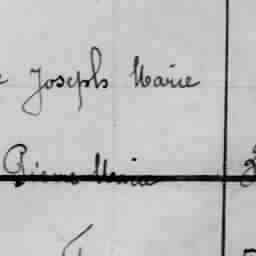 Joseph Marie
Pierre Marie